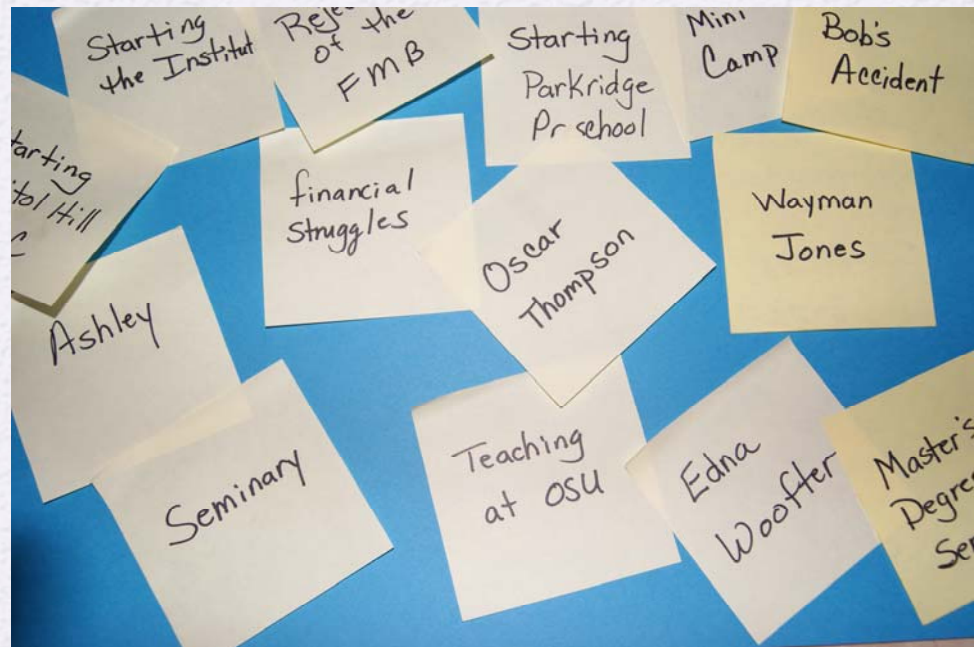 Starting
the Institut
of the
FMB
Starting
Parkridge
Pr school
Mini
Camp
Bob's
Accident
Hill
financial
Struggles
Oscar
Thompson
Wayman
Jones
Ashley
Seminary
Teaching
at OSU
Edna
Woofter
Master's